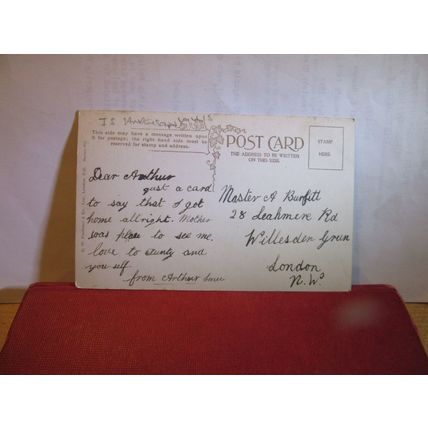 This side may have a message written upon
it for postage, the right hand side must be
reserved for stamp and address.
POST CARD
THE ADDRESS TO BE WRITTEN
ON THIS SIDE.
STAMP
HERE
Dear Arthur
just a card
to say that I got
home allright. Mother
was please to see me.
love to aunty and
youself
from Arthur
Master A Burfitt
28 Leahmere Rd
Willesden Grun
London
N.W.